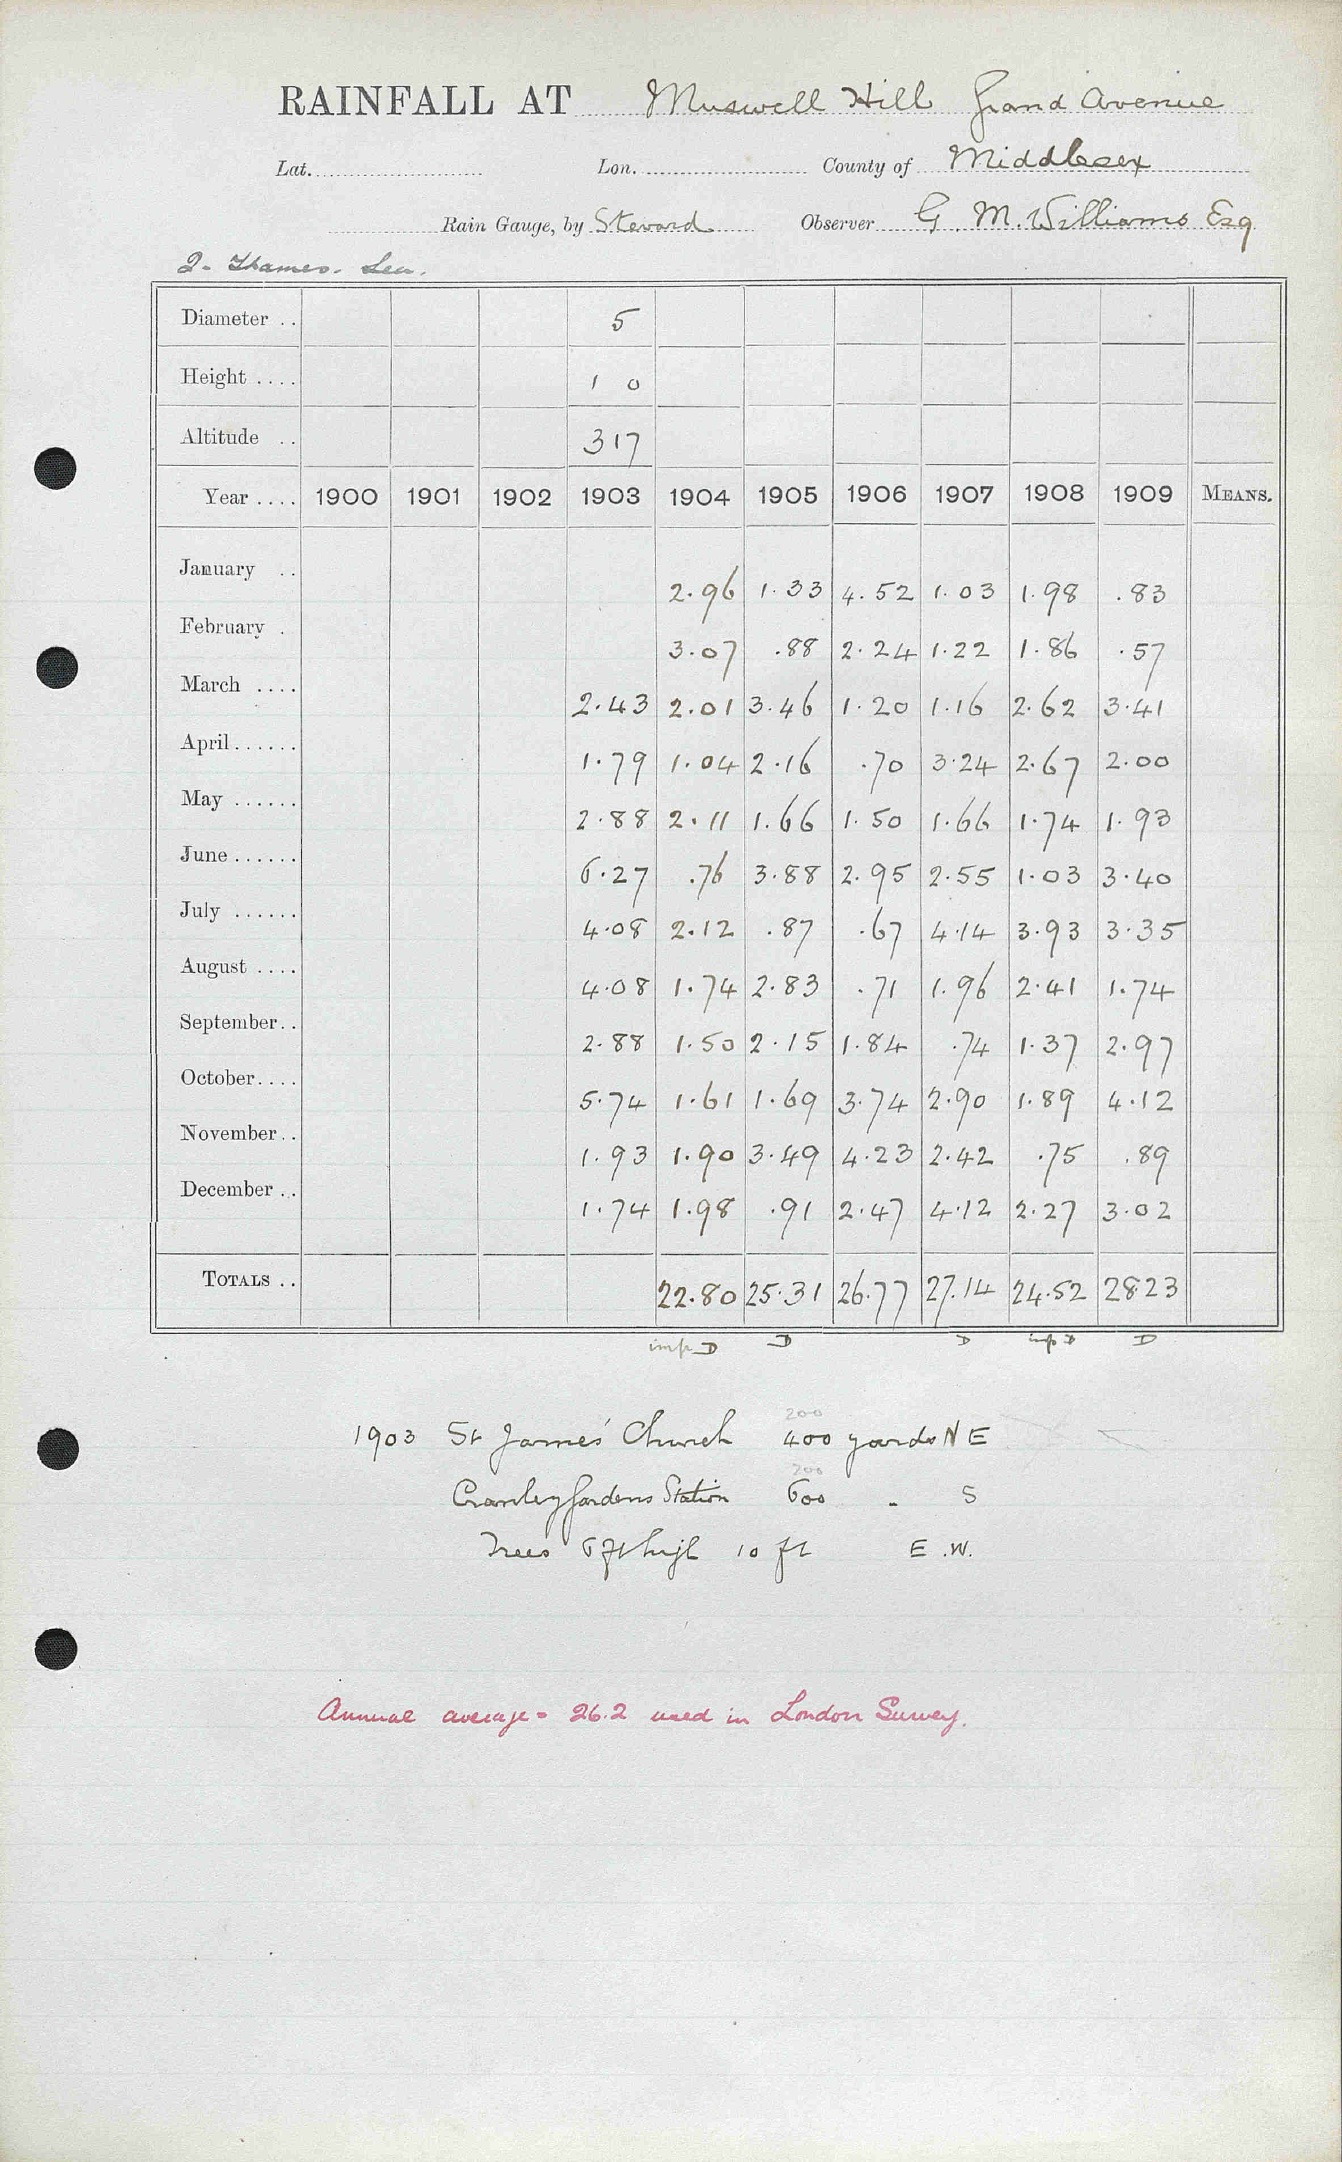 RAINFALL AT Muswell Hill Grand Avenue
Lat. Lon. County of Middlesex
Rain Gauge, by Steward Observer G. M. Williams Esq
2- Thames. Lea.
Diameter .. 5
Height .... 1 0
Altitude .. 317
Year .... 1900 1901 1902 1903 1904 1905 1906 1907 1908 1909 MEANS.
January .. 2.96 1.33 4.52 1.03 1.98 .83
February . 3.07 .88 2.24 1.22 1.86 .57
March .... 2.43 2.01 3.46 1.20 1.16 2.62 3.41
April...... 1.79 1.04 2.16 .70 3.24 2.67 2.00
May ...... 2.88 2.11 1.66 1.50 1.66 1.74 1.93
June ...... 6.27 .76 3.88 2.95 2.55 1.03 3.40
July ...... 4.08 2.12 .87 .67 4.14 3.93 3.35
August .... 4.08 1.74 2.83 .71 1.96 2.41 1.74
September.. 2.88 1.50 2.15 1.84 .74 1.37 2.97
October.... 5.74 1.61 1.69 3.74 2.90 1.89 4.12
November.. 1.93 1.90 3.49 4.23 2.42 .75 .89
December .. 1.74 1.98 .91 2.47 4.12 2.27 3.02
TOTALS .. 22.80 25.31 26.77 27.14 24.52 28.23
imp D D D imp D D
200
1903 St James' Church 400 yards N E
700
Cranley Gardens Station 600 - S
Trees 6 ft high 10 ft E . W.
Annual average = 26.2 used in London Survey.